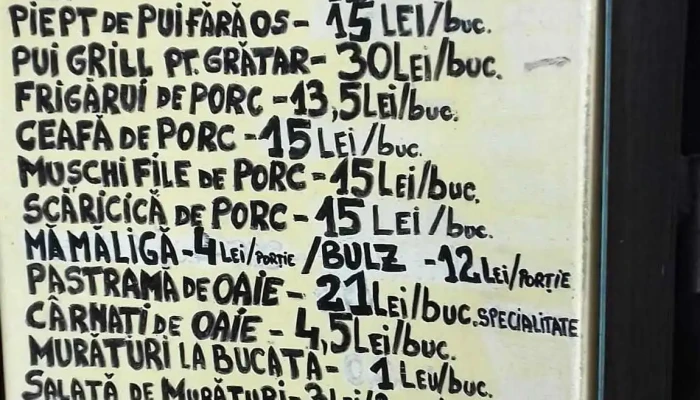 PIEPT DE PUI FĂRĂ OS - 15 LEI/buc.
PUI GRILL PT. GRĂTAR - 30 LEI/buc.
FRIGĂRUI DE PORC - 13,5 LEI/buc.
CEAFĂ DE PORC - 15 LEI/buc.
MUȘCHI FILE DE PORC - 15 LEI/buc.
SCĂRICICĂ DE PORC - 15 LEI/buc.
MĂMĂLIGĂ - 4 LEI/PORȚIE /BULZ - 12 LEI/PORȚIE
PASTRAMĂ DE OAIE - 21 LEI/buc. SPECIALITATE
CÂRNAȚI DE OAIE - 4,5 LEI/buc.
MURĂTURI LA BUCATĂ - 1 LEU/buc.
SALATĂ DE MURĂTURI - 3 LEI/